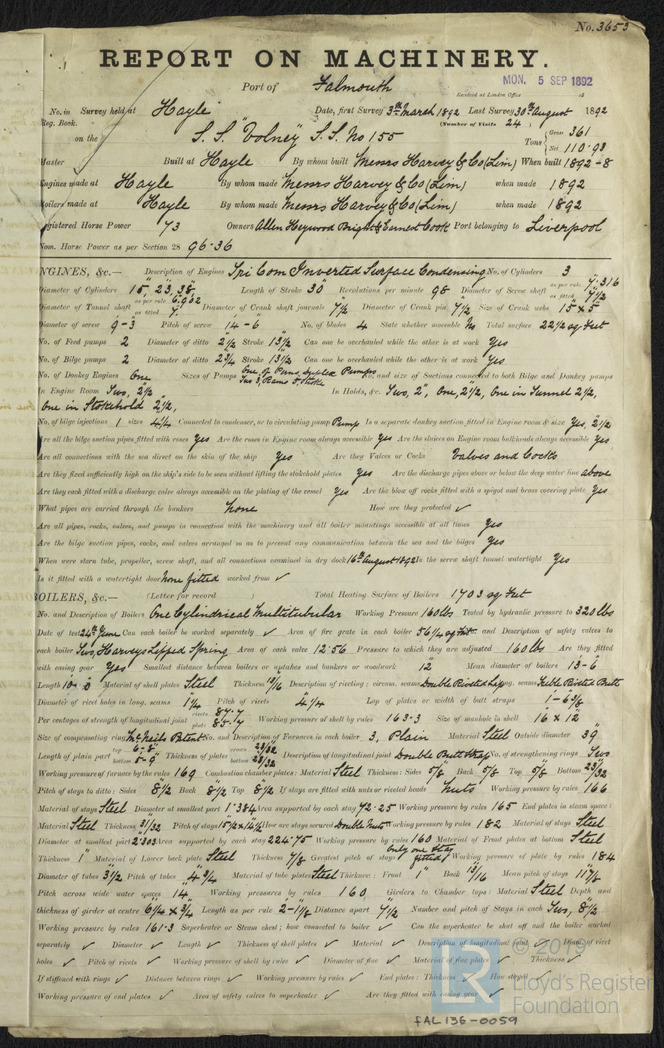 No. 3653
REPORT ON MACHINERY.
Port of Falmouth
Received at London Office MON. 5 SEP 1892 18
No. in Survey held at Hayle Date, first Survey 3rd March 1892 Last Survey 30th August 1892
Reg. Book. (Number of Visits 24)
on the S.S. "Volney" S.S. No 155 Tons Gross 361 Net 110.93
Master Built at Hayle By whom built Messrs Harvey & Co (Lim) When built 1892-8
Engines made at Hayle By whom made Messrs Harvey & Co (Lim) when made 1892
Boilers made at Hayle By whom made Messrs Harvey & Co (Lim) when made 1892
Registered Horse Power 73 Owners Allen Heywood Bright & Ernest Cook Port belonging to Liverpool
Nom. Horse Power as per Section 28 96.36
ENGINES, &c.— Description of Engines Tri Com Inverted Surface Condensing No. of Cylinders 3
Diameter of Cylinders 15", 23, 38, Length of Stroke 30" Revolutions per minute 98 Diameter of Screw shaft as per rule 7.316 as fitted 7 1/2
Diameter of Tunnel shaft as per rule 6.962 as fitted 7. Diameter of Crank shaft journals 7 1/2 Diameter of Crank pin 7 1/2 Size of Crank webs 15 x 5
Diameter of screw 9-3 Pitch of screw 14-6 No. of blades 4 State whether moveable No Total surface 22 1/2 sq feet
No. of Feed pumps 2 Diameter of ditto 2 1/2 Stroke 13 1/2 Can one be overhauled while the other is at work Yes
No. of Bilge pumps 2 Diameter of ditto 2 3/4 Stroke 13 1/2 Can one be overhauled while the other is at work Yes
No. of Donkey Engines One Sizes of Pumps No. and size of Suctions connected to both Bilge and Donkey pumps
In Engine Room Two, 2 1/2 In Holds, &c. Two, 2", One, 2 1/2, One in Tunnel 2 1/2,
One in Stokehold 2 1/2,
No. of bilge injections 1 sizes 4 1/4 Connected to condenser, or to circulating pump Pump Is a separate donkey suction fitted in Engine room & size Yes, 2 1/2
Are all the bilge suction pipes fitted with roses Yes Are the roses in Engine room always accessible Yes Are the sluices on Engine room bulkheads always accessible Yes
Are all connections with the sea direct on the skin of the ship Yes Are they Valves or Cocks Valves and Cocks
Are they fixed sufficiently high on the ship's side to be seen without lifting the stokehold plates Yes Are the discharge pipes above or below the deep water line above
Are they each fitted with a discharge valve always accessible on the plating of the vessel Yes Are the blow off cocks fitted with a spigot and brass covering plate Yes
What pipes are carried through the bunkers None How are they protected ✓
Are all pipes, cocks, valves, and pumps in connection with the machinery and all boiler mountings accessible at all times Yes
Are the bilge suction pipes, cocks, and valves arranged so as to prevent any communication between the sea and the bilges Yes
When were stern tube, propeller, screw shaft, and all connections examined in dry dock 16th August 1892 Is the screw shaft tunnel watertight Yes
Is it fitted with a watertight door None fitted worked from ✓
BOILERS, &c.— (Letter for record ) Total Heating Surface of Boilers 1703 sq feet
No. and Description of Boilers One Cylindrical Multitubular Working Pressure 160 lbs Tested by hydraulic pressure to 320 lbs
Date of test 24th June Can each boiler be worked separately ✓ Area of fire grate in each boiler 56 1/4 sq feet No. and Description of safety valves to
each boiler Two, Harveys Lipped Spring Area of each valve 12.56 Pressure to which they are adjusted 160 lbs Are they fitted
with easing gear Yes Smallest distance between boilers or uptakes and bunkers or woodwork 12" Mean diameter of boilers 13-6
Length 10-0 Material of shell plates Steel Thickness Description of riveting: circum. seams Double Riveted Lap long. seams Treble Riveted Butt
Diameter of rivet holes in long. seams 1 1/4 Pitch of rivets Lap of plates or width of butt straps
Per centages of strength of longitudinal joint rivets plate 85.17 Working pressure of shell by rules 163.3 Size of manhole in shell 16 x 12"
Size of compensating ring McNeils Patent No. and Description of Furnaces in each boiler 3, Plain Material Steel Outside diameter 39"
Length of plain part top 6-8" bottom 5-9" Thickness of plates crown 23/32 bottom 23/32 Description of longitudinal joint Double Butt Strap No. of strengthening rings Two
Working pressure of furnace by the rules 169 Combustion chamber plates: Material Steel Thickness: Sides 5/8 Back 5/8 Top 5/8 Bottom 23/32
Pitch of stays to ditto: Sides 8 1/2 Back 8 1/2 Top 8 1/2 If stays are fitted with nuts or riveted heads Nuts Working pressure by rules 166
Material of stays Steel Diameter at smallest part 1.384 Area supported by each stay 72.25 Working pressure by rules 165 End plates in steam space:
Material Steel Thickness Pitch of stays How are stays secured Double Nuts Working pressure by rules 182 Material of stays Steel
Diameter at smallest part 2.303 Area supported by each stay 224.75 Working pressure by rules 160 Material of Front plates at bottom Steel
Thickness 1" Material of Lower back plate Steel Thickness 7/8 Greatest pitch of stays only one stay fitted Working pressure of plate by rules 184
Diameter of tubes 3 1/2 Pitch of tubes 4 3/4 Material of tube plates Steel Thickness: Front 1" Back 13/16 Mean pitch of stays 11 7/8
Pitch across wide water spaces 14" Working pressures by rules 160 Girders to Chamber tops: Material Steel Depth and
thickness of girder at centre 6 1/4 x 3/4 Length as per rule Distance apart 7 1/2 Number and pitch of Stays in each Two, 8 1/2
Working pressure by rules 161.3 Superheater or Steam chest; how connected to boiler ✓ Can the superheater be shut off and the boiler worked
separately ✓ Diameter ✓ Length ✓ Thickness of shell plates ✓ Material ✓ Description of longitudinal joint ✓ Diam. of rivet
holes ✓ Pitch of rivets ✓ Working pressure of shell by rules ✓ Diameter of flue ✓ Material of flue plates ✓ Thickness ✓
If stiffened with rings ✓ Distance between rings ✓ Working pressure by rules ✓ End plates: Thickness ✓ How stayed ✓
Working pressure of end plates ✓ Area of safety valves to superheater ✓ Are they fitted with easing gear ✓
© 2019
LR
Lloyd's Register
Foundation
FAL136-0059